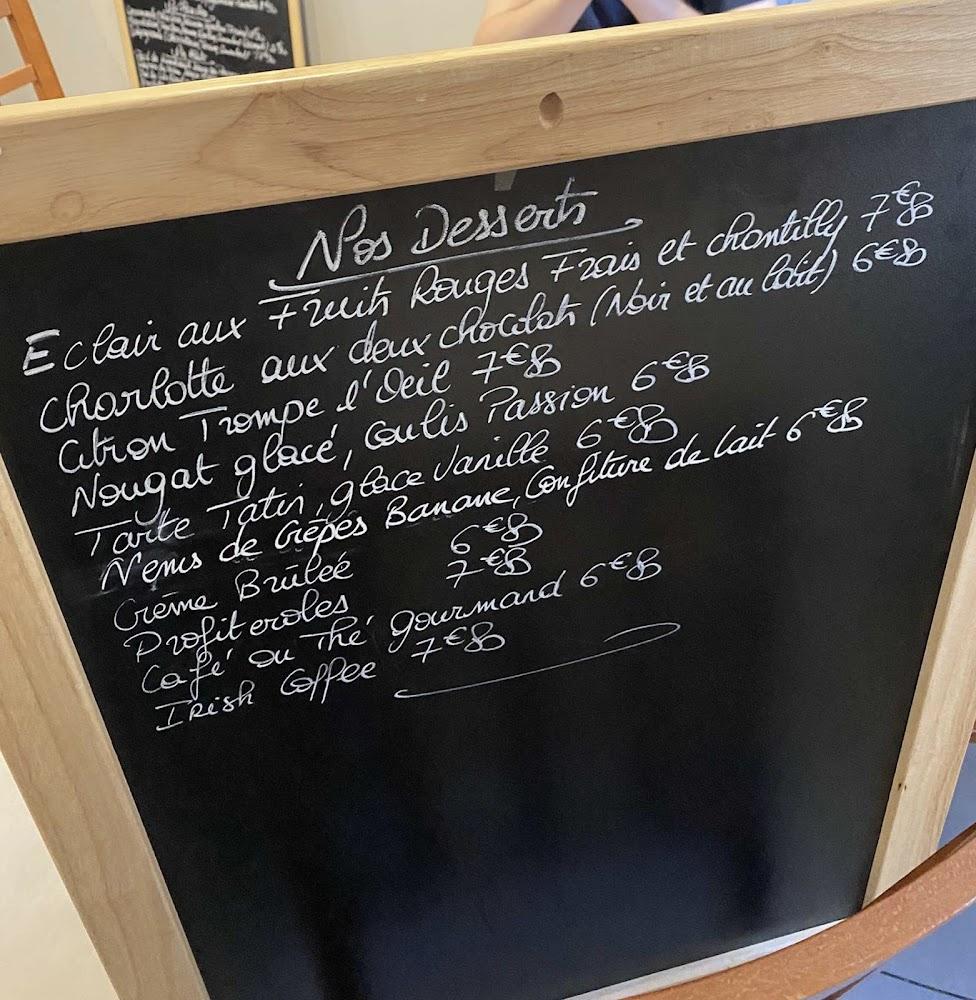 Nos Desserts
Eclair aux Fruits Rouges Frais et chantilly 7€80
Charlotte aux deux chocolats (Noir et au lait) 6€80
Citron Trompe l'Oeil 7€80
Nougat glacé, Coulis Passion 6€80
Tarte Tatin, glace Vanille 6€80
Nems de Crêpes Banane, Confiture de lait 6€80
Crème Brûleé 6€80
Profiteroles 7€80
Café ou Thé gourmand 6€80
Irish Coffee 7€80